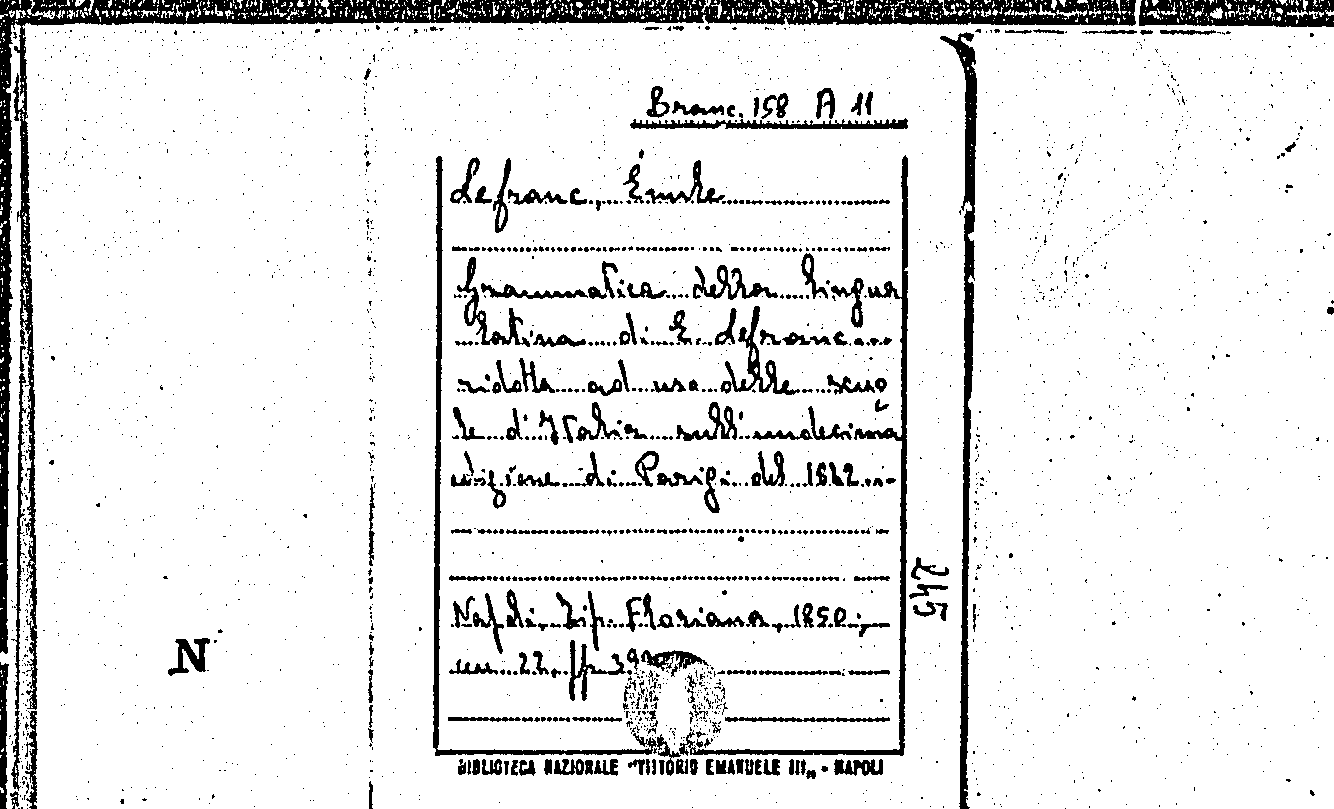 Branc. 158 A 11
Lefranc, Émile
Grammatica della lingua
latina di E. Lefranc...
ridotta ad uso delle scuo
le d'Italia sull'undecima
edizione di Parigi del 1842...
Napoli, Tip. Floriana, 1850;
cm 22, pp.
245
N
BIBLIOTECA NAZIONALE "VITTORIO EMANUELE III„ - NAPOLI